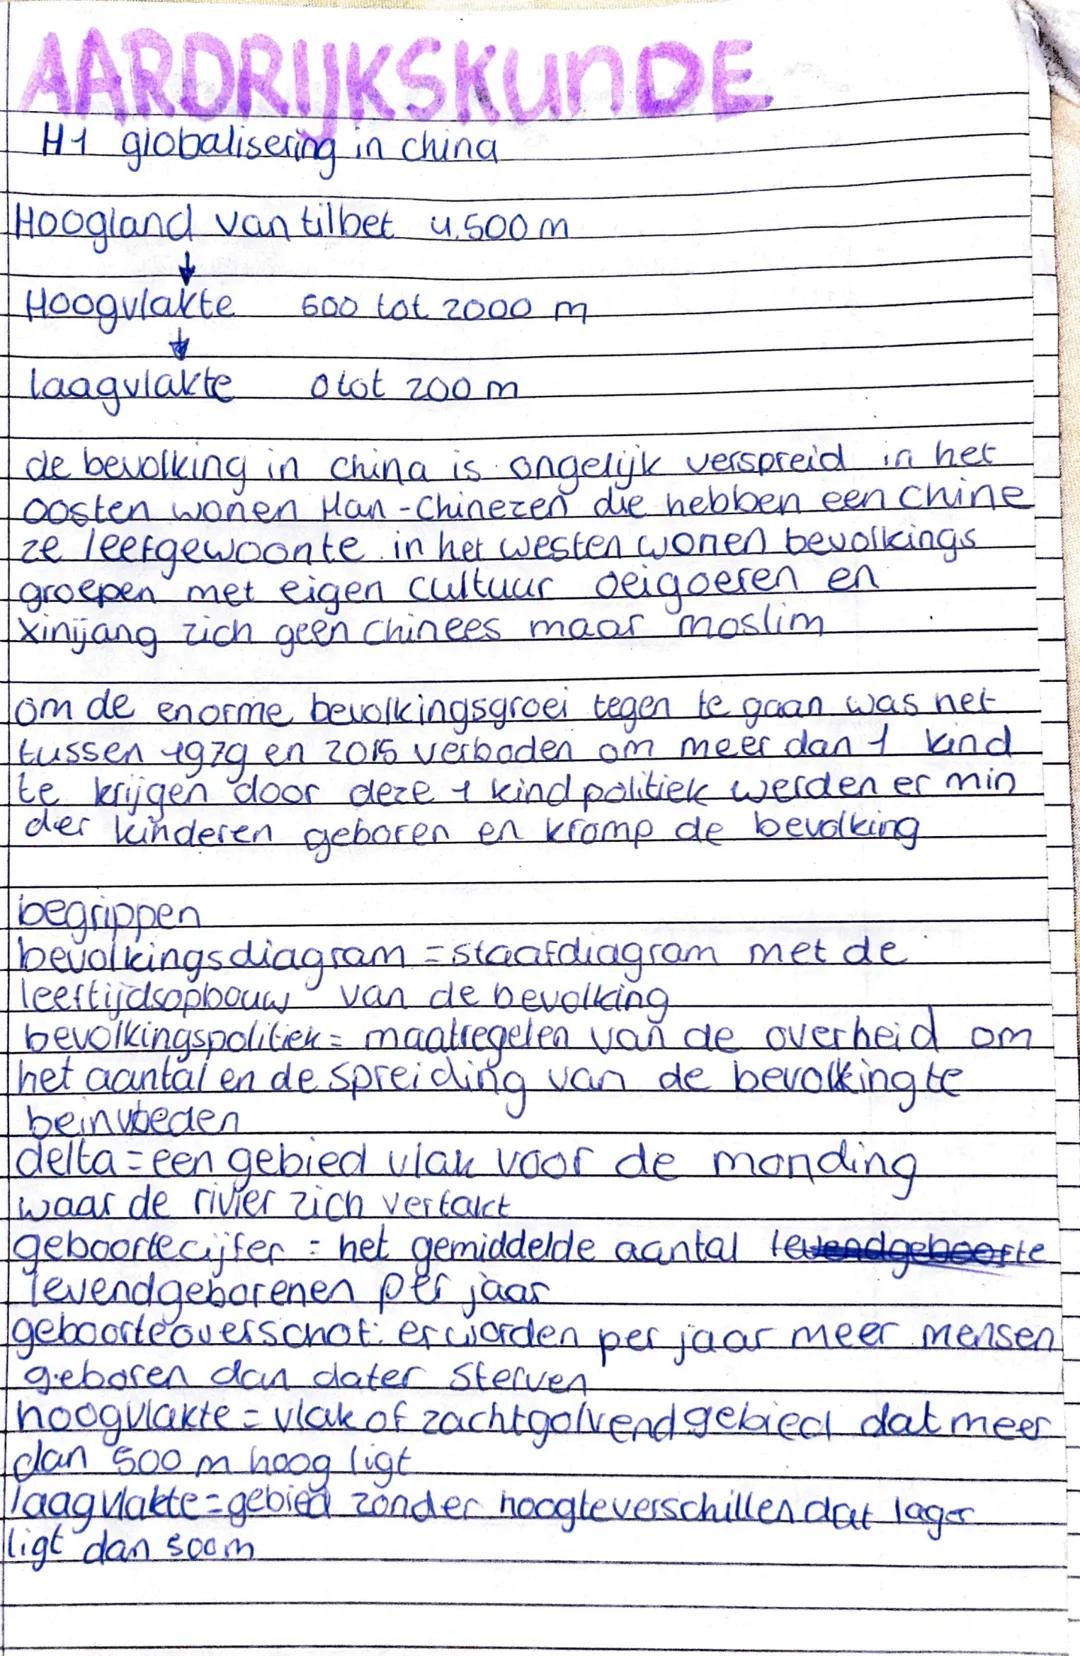 AARDRIJKSKUNDE
H1 globalisering in china
Hoogland van tilbet 4.500 m
↓
Hoogvlakte 500 tot 2000 m
↓
laagvlakte 0 tot 200 m
de bevolking in china is ongelijk verspreid in het
oosten wonen Han-Chinezen die hebben een chine
ze leefgewoonte in het westen wonen bevolkings
groepen met eigen cultuur oeigoeren en
xinijang zich geen chinees maar moslim
om de enorme bevolkingsgroei tegen te gaan was het
tussen 1979 en 2015 verboden om meer dan 1 kind
te krijgen door deze 1 kind politiek werden er min
der kinderen geboren en kromp de bevolking
begrippen
bevolkingsdiagram = staafdiagram met de
leeftijdsopbouw van de bevolking
bevolkingspolitiek = maatregelen van de overheid om
het aantal en de spreiding van de bevolking te
beinvoeden
delta = een gebied vlak voor de monding
waar de rivier zich vertakt
geboortecijfer = het gemiddelde aantal levendgeboorte
levendgeborenen per jaar
geboorteoverschot: er worden per jaar meer mensen
geboren dan dater sterven
hoogvlakte = vlak of zachtgolvend gebied dat meer
dan 500 m hoog ligt
laagvlakte = gebied zonder hoogteverschillen dat lager
ligt dan 500m